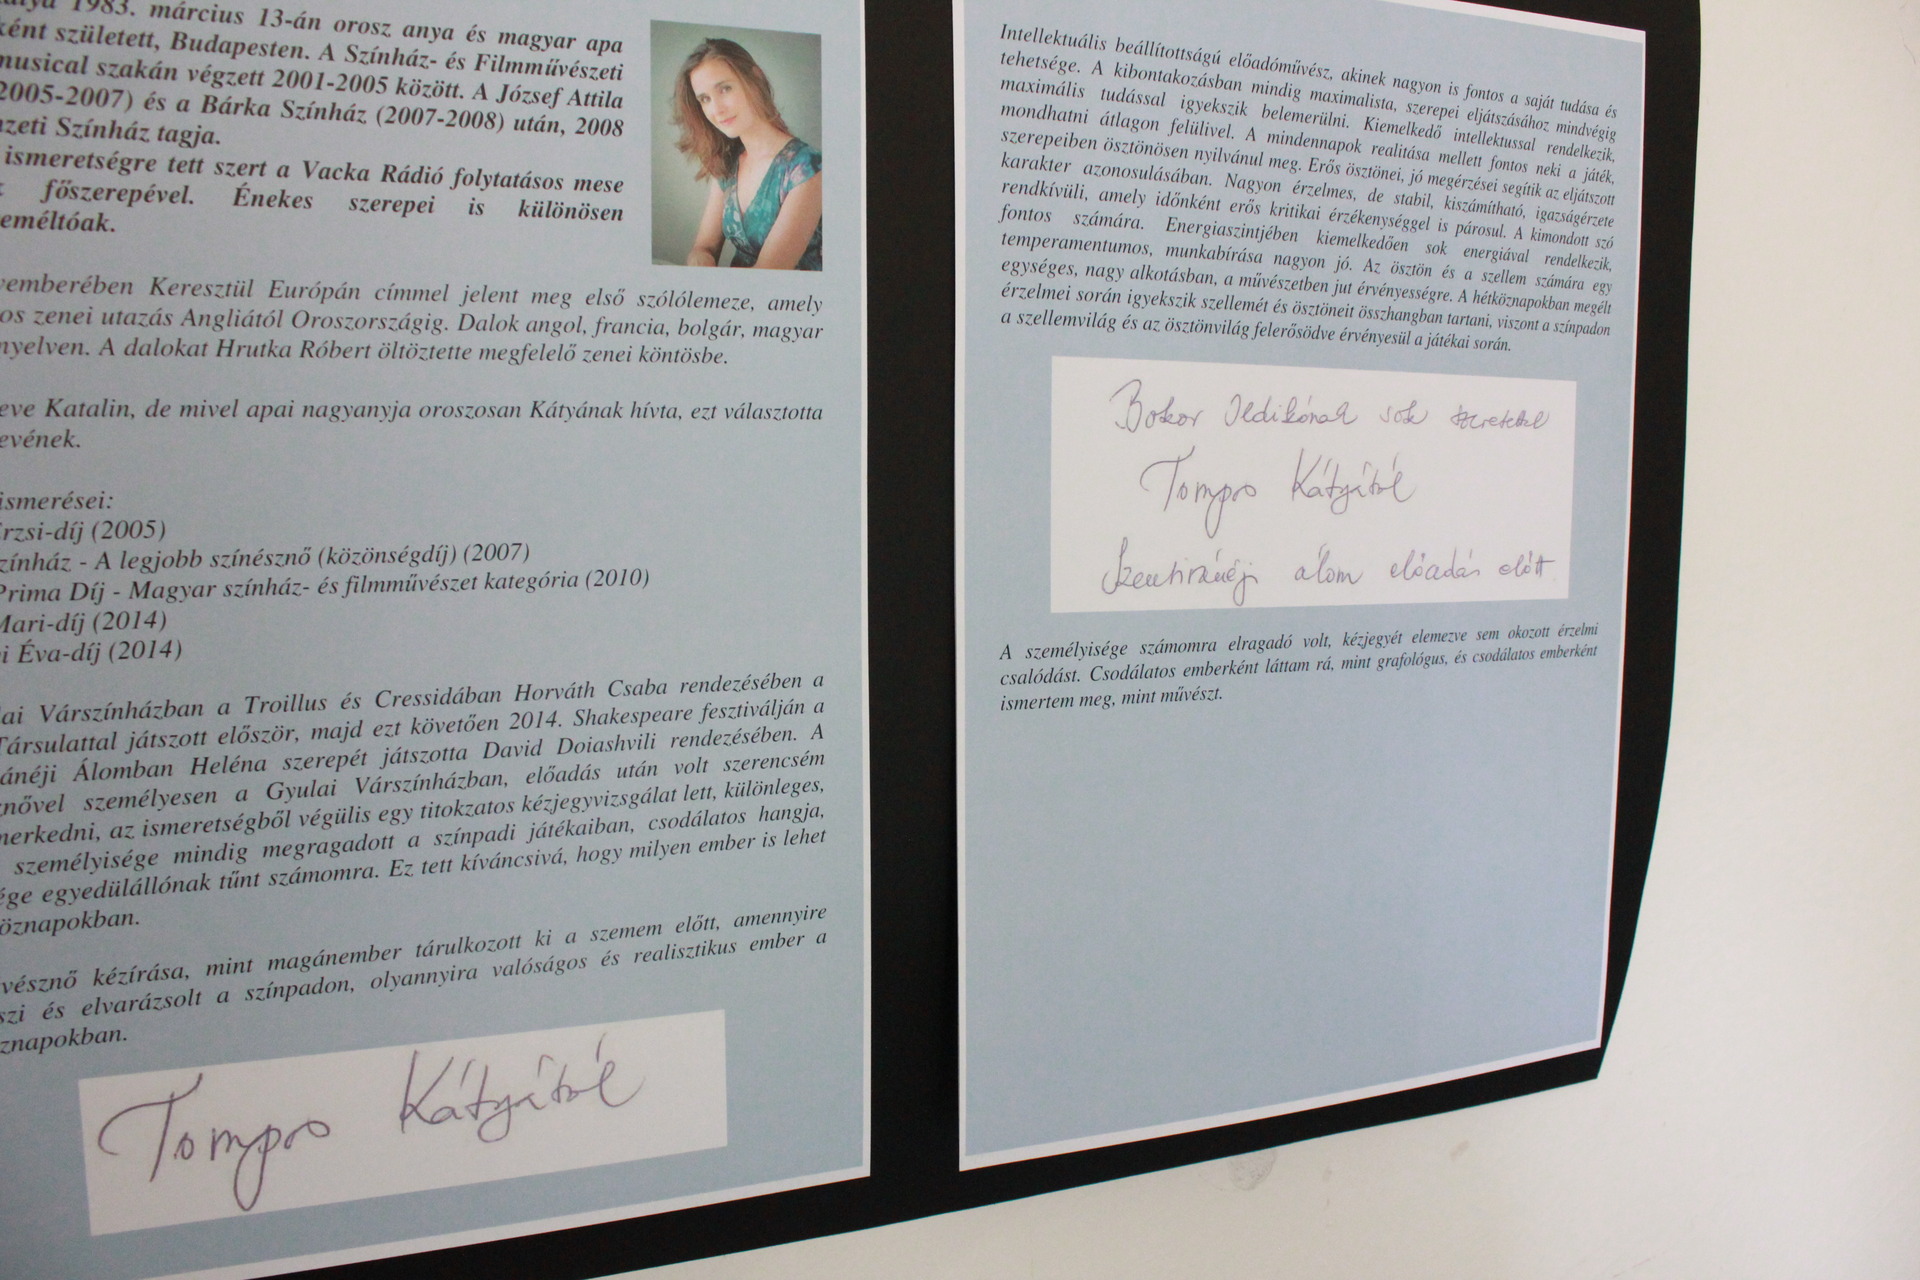 1983. március 13-án orosz anya és magyar apa
ként született, Budapesten. A Színház- és Filmművészeti
musical szakán végzett 2001-2005 között. A József Attila
2005-2007) és a Bárka Színház (2007-2008) után, 2008
zeti Színház tagja.
ismeretségre tett szert a Vacka Rádió folytatásos mese
főszerepével. Énekes szerepei is különösen
eméltóak.
vemberében Keresztül Európán címmel jelent meg első szólólemeze, amely
os zenei utazás Angliától Oroszországig. Dalok angol, francia, bolgár, magyar
nyelven. A dalokat Hrutka Róbert öltöztette megfelelő zenei köntösbe.
eve Katalin, de mivel apai nagyanyja oroszosan Kátyának hívta, ezt választotta
evének.
ismerései:
rzsi-díj (2005)
zínház - A legjobb színésznő (közönségdíj) (2007)
Prima Díj - Magyar színház- és filmművészet kategória (2010)
Mari-díj (2014)
i Éva-díj (2014)
lai Várszínházban a Troillus és Cressidában Horváth Csaba rendezésében a
Társulattal játszott először, majd ezt követően 2014. Shakespeare fesztiválján a
ánéji Álomban Heléna szerepét játszotta David Doiashvili rendezésében. A
nővel személyesen a Gyulai Várszínházban, előadás után volt szerencsém
merkedni, az ismeretségből végülis egy titokzatos kézjegyvizsgálat lett, különleges,
személyisége mindig megragadott a színpadi játékaiban, csodálatos hangja,
ége egyedülállónak tűnt számomra. Ez tett kíváncsivá, hogy milyen ember is lehet
öznapokban.
vésznő kézírása, mint magánember tárulkozott ki a szemem előtt, amennyire
szi és elvarázsolt a színpadon, olyannyira valóságos és realisztikus ember a
znapokban.
Tompos Kátyától
Intellektuális beállítottságú előadóművész, akinek nagyon is fontos a saját tudása és
tehetsége. A kibontakozásban mindig maximalista, szerepei eljátszásához mindvégig
maximális tudással igyekszik belemerülni. Kiemelkedő intellektussal rendelkezik,
mondhatni átlagon felülivel. A mindennapok realitása mellett fontos neki a játék,
szerepeiben ösztönösen nyilvánul meg. Erős ösztönei, jó megérzései segítik az eljátszott
karakter azonosulásában. Nagyon érzelmes, de stabil, kiszámítható, igazságérzete
rendkívüli, amely időnként erős kritikai érzékenységgel is párosul. A kimondott szó
fontos számára. Energiaszintjében kiemelkedően sok energiával rendelkezik,
temperamentumos, munkabírása nagyon jó. Az ösztön és a szellem számára egy
egységes, nagy alkotásban, a művészetben jut érvényességre. A hétköznapokban megélt
érzelmei során igyekszik szellemét és ösztöneit összhangban tartani, viszont a színpadon
a szellemvilág és az ösztönvilág felerősödve érvényesül a játékai során.
Bokor Ildikónak sok szeretettel
Tompos Kátyától
Szentivánéji álom előadás előtt
A személyisége számomra elragadó volt, kézjegyét elemezve sem okozott érzelmi
csalódást. Csodálatos emberként láttam rá, mint grafológus, és csodálatos emberként
ismertem meg, mint művészt.